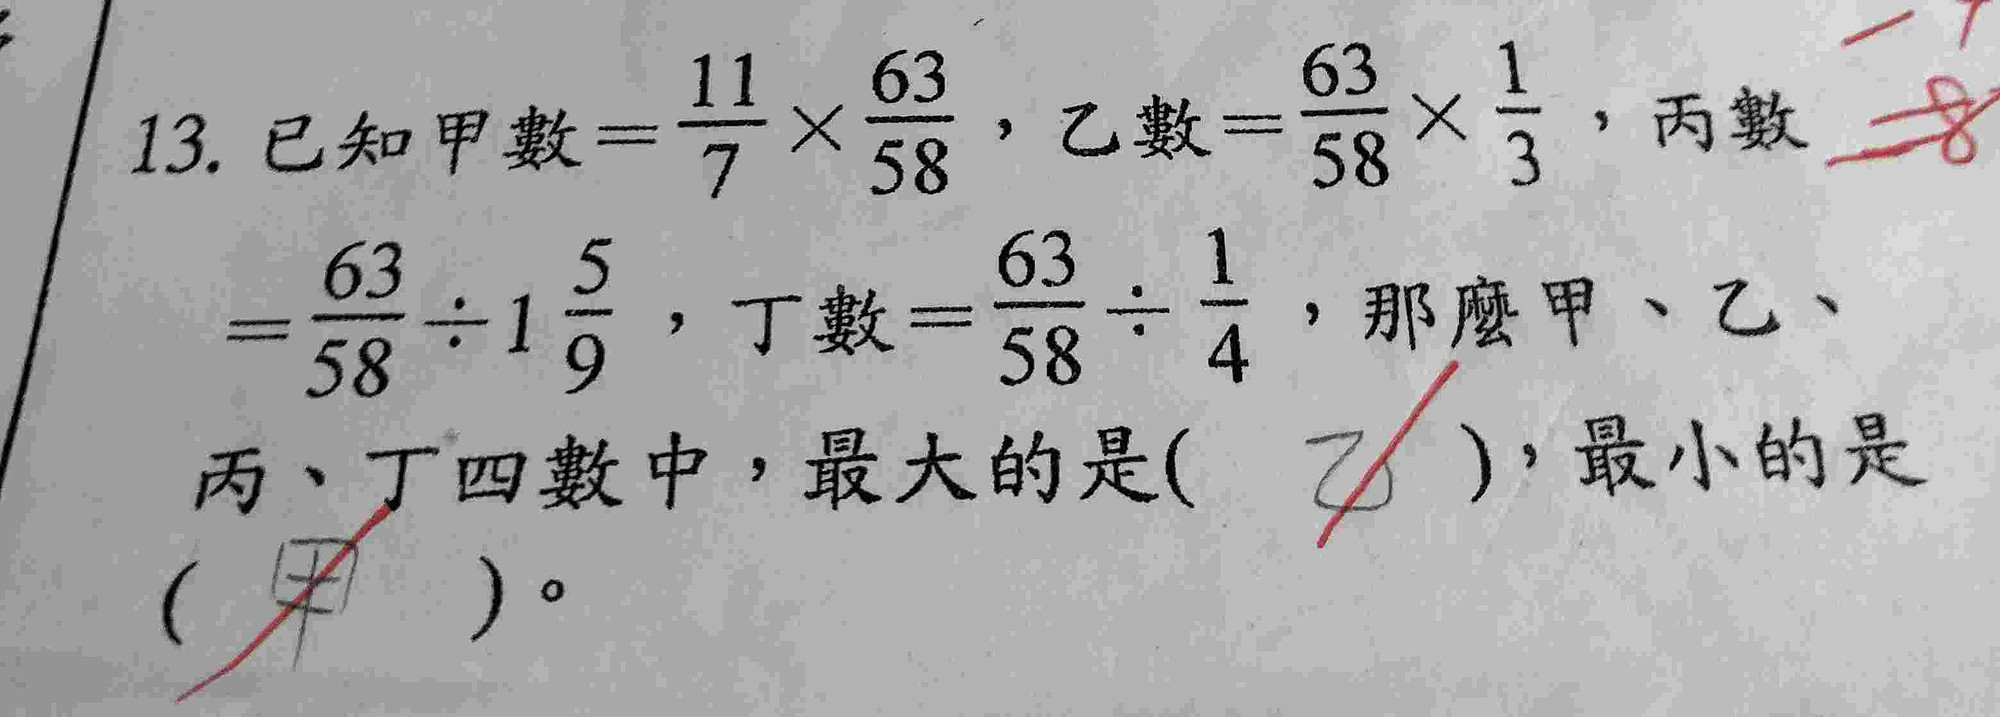 13. 已知甲數=11/7×63/58，乙數=63/58×1/3，丙數
=63/58÷1 5/9，丁數=63/58÷1/4，那麼甲、乙、
丙、丁四數中，最大的是( 乙 )，最小的是
( 甲 )。
-8